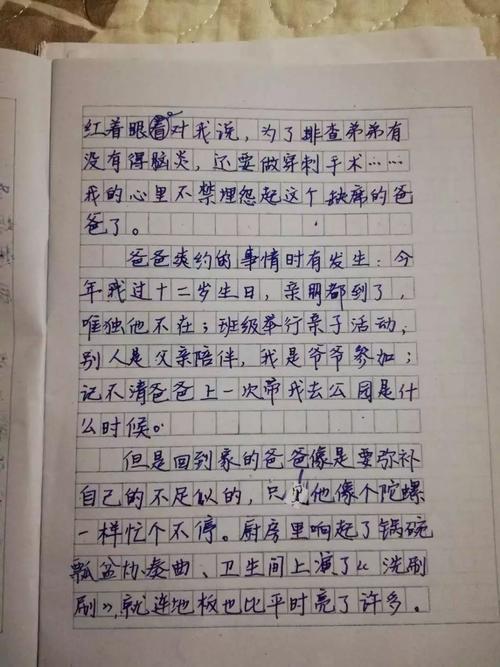 红着眼对我说，为了排查弟弟有
没有得脑炎，还要做穿刺手术……
我的心里不禁埋怨起这个缺席的爸
爸了。
爸爸爽约的事情时有发生：今
年我过十二岁生日，亲朋都到了，
唯独他不在；班级举行亲子活动，
别人是父亲陪伴，我是爷爷参加；
记不清爸爸上一次带我去公园是什
么时候。
但是回到家的爸爸像是要弥补
自己的不足似的，只见他像个陀螺
一样忙个不停。厨房里响起了锅碗
瓢盆协奏曲、卫生间上演了《洗刷
刷》，就连地板也比平时亮了许多。